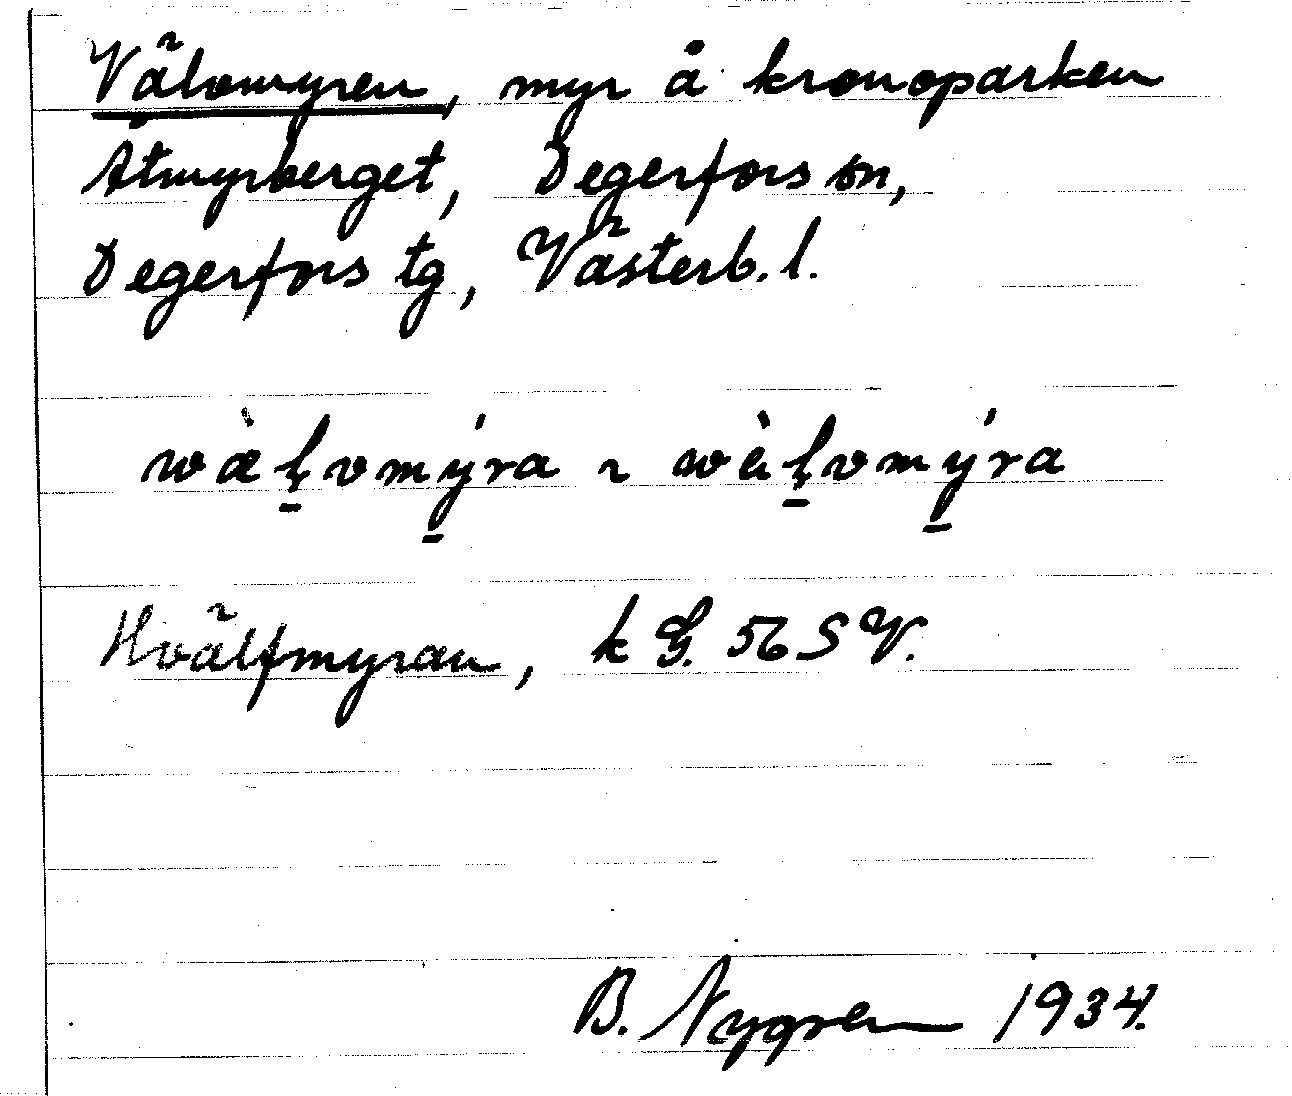 Välomyren, myr å kronoparken
Åtmyrberget, Degerfors sn,
Degerfors tg, Västerb. l.
wàḷvomýra ~ wàḷvomýra
Hvälfmyran, k G. 56 SV.
B. Nygren 1934.